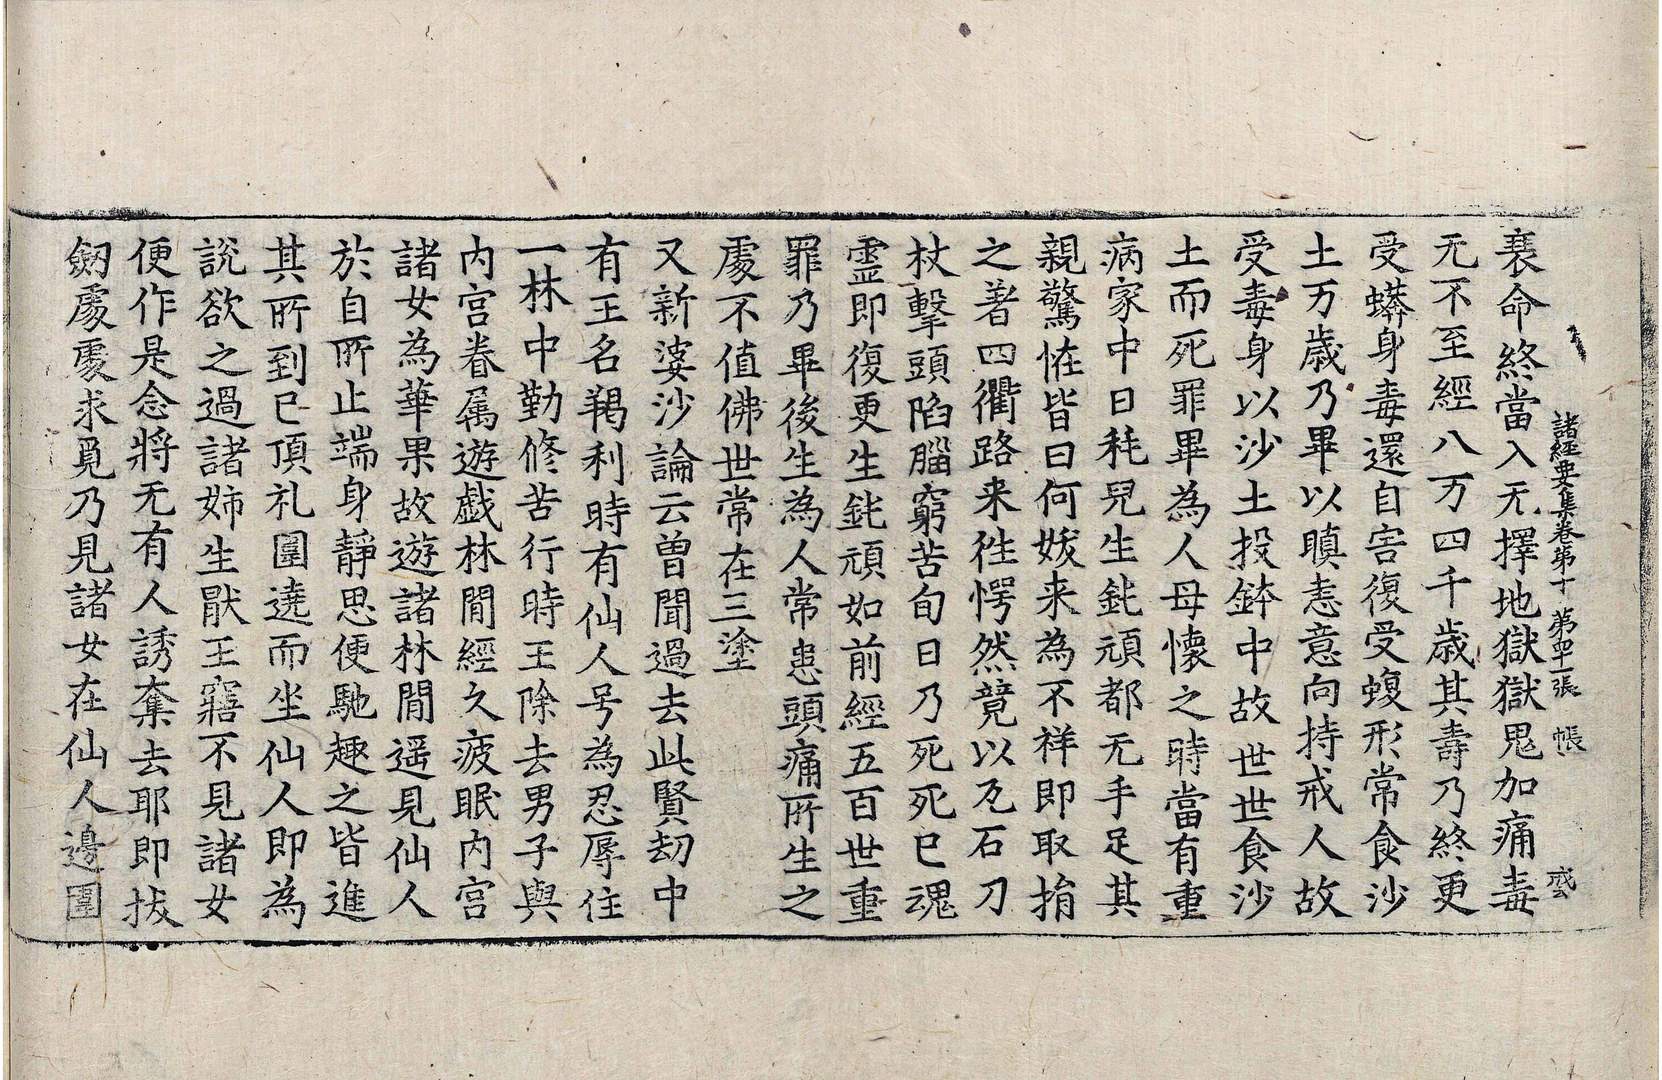 諸經要集卷第十 第四十二張 帳
衰命終當入无擇地獄獄鬼加痛毒
无不至經八万四千歲其壽乃終更
受蟒身毒還自害復受蝮形常食沙
土万歲乃畢以瞋恚意向持戒人故
受毒身以沙土投鉢中故世世食沙
土而死罪畢為人母懷之時當有重
病家中日秏兒生鈍頑都无手足其
親驚恠皆曰何妭来為不祥即取捐
之著四衢路来徃愕然竟以瓦石刀
杖擊頭陷腦窮苦旬日乃死死已魂
靈即復更生鈍頑如前經五百世重
罪乃畢後生為人常患頭痛所生之
處不值佛世常在三塗
又新婆沙論云曾聞過去此賢劫中
有王名羯利時有仙人号為忍辱住
一林中勤修苦行時王除去男子與
內宮眷属遊戲林間經久疲眠內宮
諸女為華果故遊諸林間遥見仙人
於自所止端身靜思便馳趣之皆進
其所到已頂礼圍遶而坐仙人即為
說欲之過諸姉生猒王寤不見諸女
便作是念將无有人誘奪去耶即拔
劒處處求覓乃見諸女在仙人邊圍